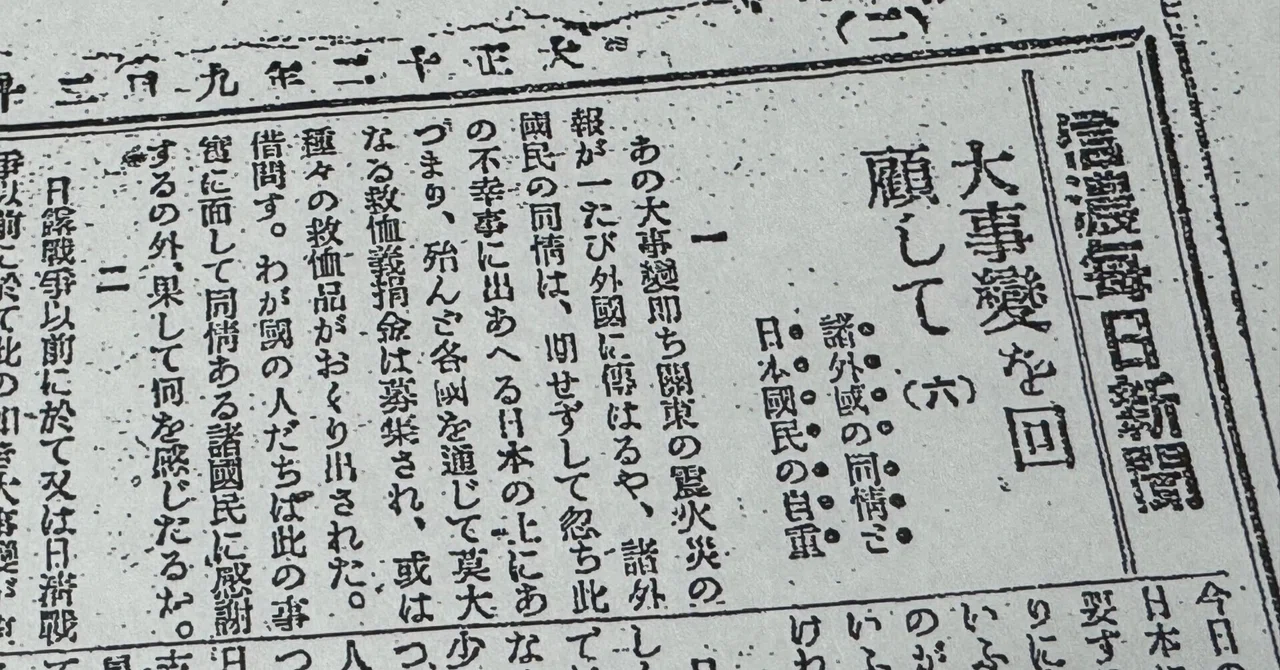 (二)
大正十二年九
毎日新聞
大事變を回
顧して(六)
諸外國の同情と
日本國民の自重
一
あの大事變即ち關東の震火災の
報が一たび外國に傳はるや、諸外
國民の同情は、期せずして忽ち此
の不幸事に出あへる日本の上にあ
づまり、殆んど各國を通じて莫大
なる救恤義捐金は募集され、或は
種々の救恤品がおくり出された。
借問す。わが國の人だちは此の事
實に面して同情ある諸國民に感謝
するの外、果して何を感じたるか。
二
日露戰爭以前に於て又は日淸戰
爭以前に於て此の如き大事變が
今日の
日本
要す
りに
いふ
のが
いふ
けれ
日
し
てい
な
少
つ、
人
つ
日